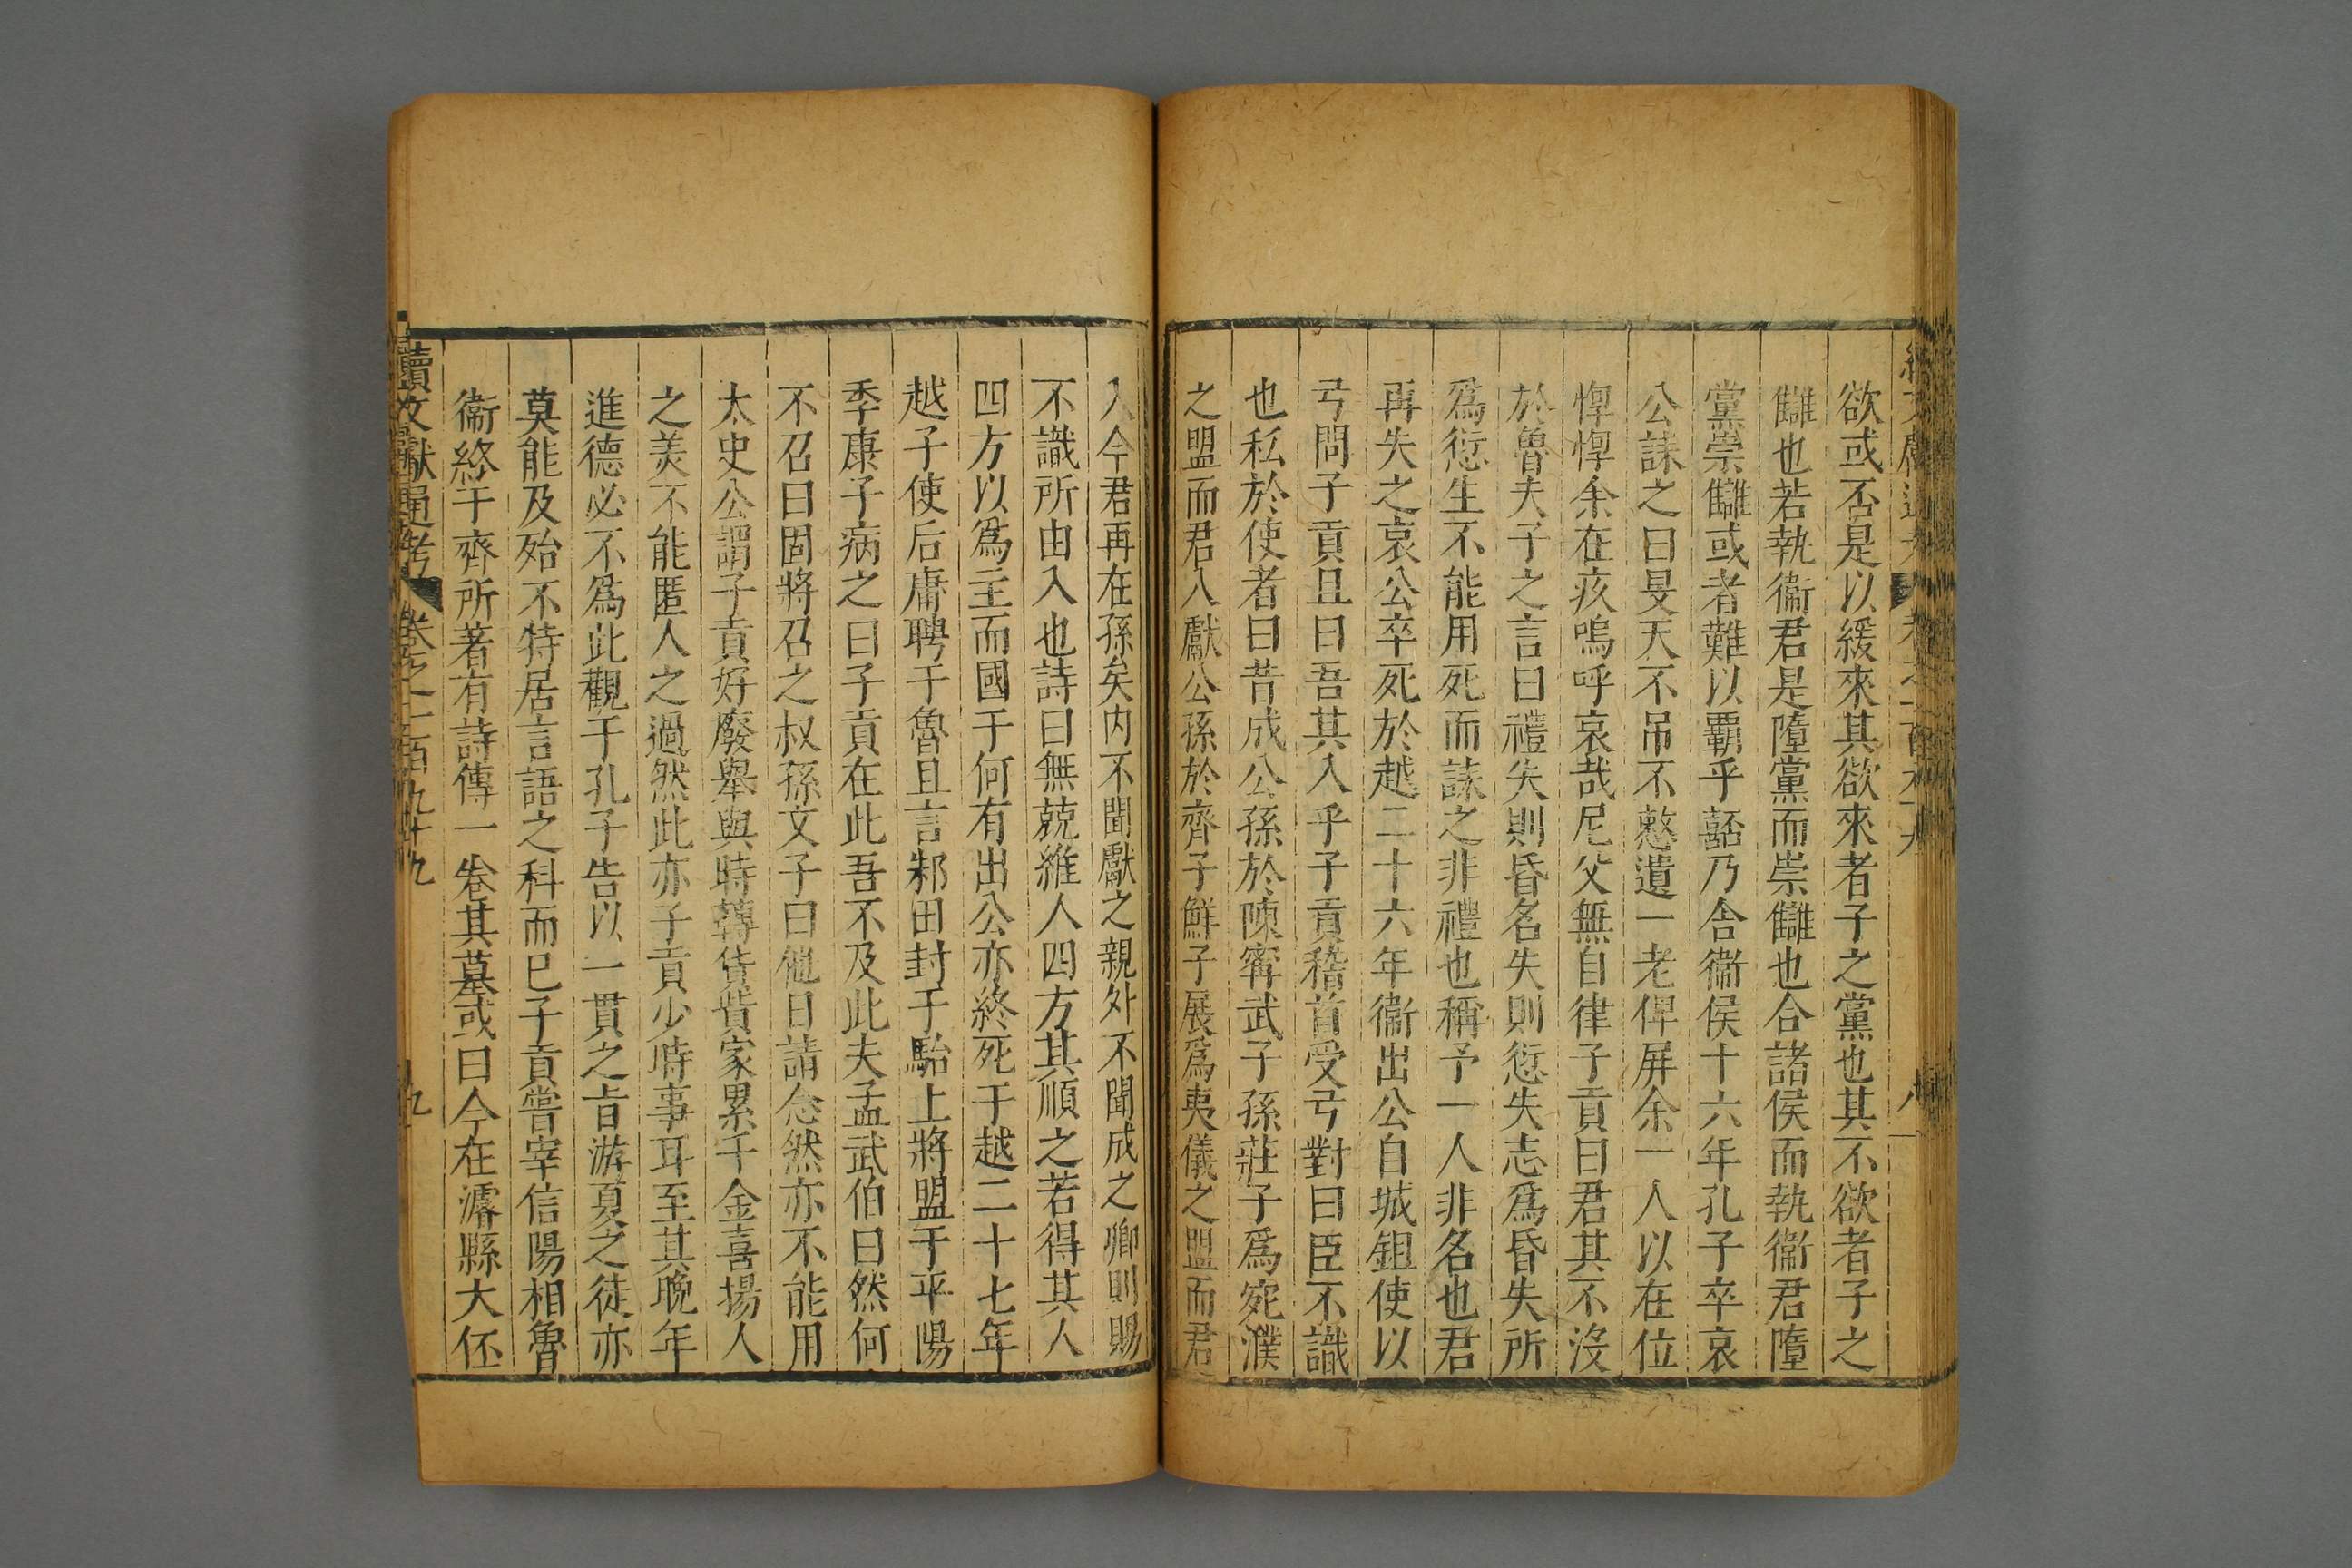 欲或否是以緩來其欲來者子之黨也其不欲者子之
讎也若執衞君是墮黨而崇讎也合諸侯而執衞君墮
黨崇讎或者難以霸乎嚭乃舍衞侯十六年孔子卒哀
公誄之曰旻天不吊不憖遺一老俾屏余一人以在位
惸惸余在疚嗚呼哀哉尼父無自律子貢曰君其不沒
於魯夫子之言曰禮失則昏名失則愆失志爲昏失所
爲愆生不能用死而誄之非禮也稱予一人非名也君
再失之哀公卒死於越二十六年衞出公自城鉏使以
弓問子貢且曰吾其入乎子貢稽首受弓對曰臣不識
也私於使者曰昔成公孫於陳甯武子孫莊子爲宛濮
之盟而君入獻公孫於齊子鮮子展爲夷儀之盟而君
入今君再在孫矣内不聞獻之親外不聞成之卿則賜
不識所由入也詩曰無兢維人四方其順之若得其人
四方以爲主而國于何有出公亦終死于越二十七年
越子使后庸聘于魯且言邾田封于駘上將盟于平陽
季康子病之曰子貢在此吾不及此夫孟武伯曰然何
不召曰固將召之叔孫文子曰他日請念然亦不能用
太史公謂子貢好廢舉與時轉貨貲家累千金喜揚人
之美不能匿人之過然此亦子貢少時事耳至其晚年
進德必不爲此觀于孔子告以一貫之旨游夏之徒亦
莫能及殆不特居言語之科而已子貢嘗宰信陽相魯
衞終于齊所著有詩傳一卷其墓或曰今在濬縣大伾
續文獻通考 卷之一百九十九 九